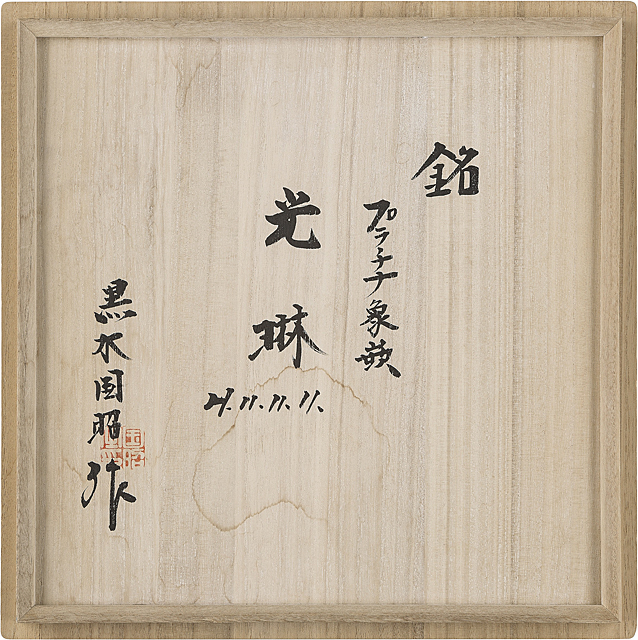 銘
プラチナ象嵌
光琳
H.11.11.11.
黒木国昭作
国昭